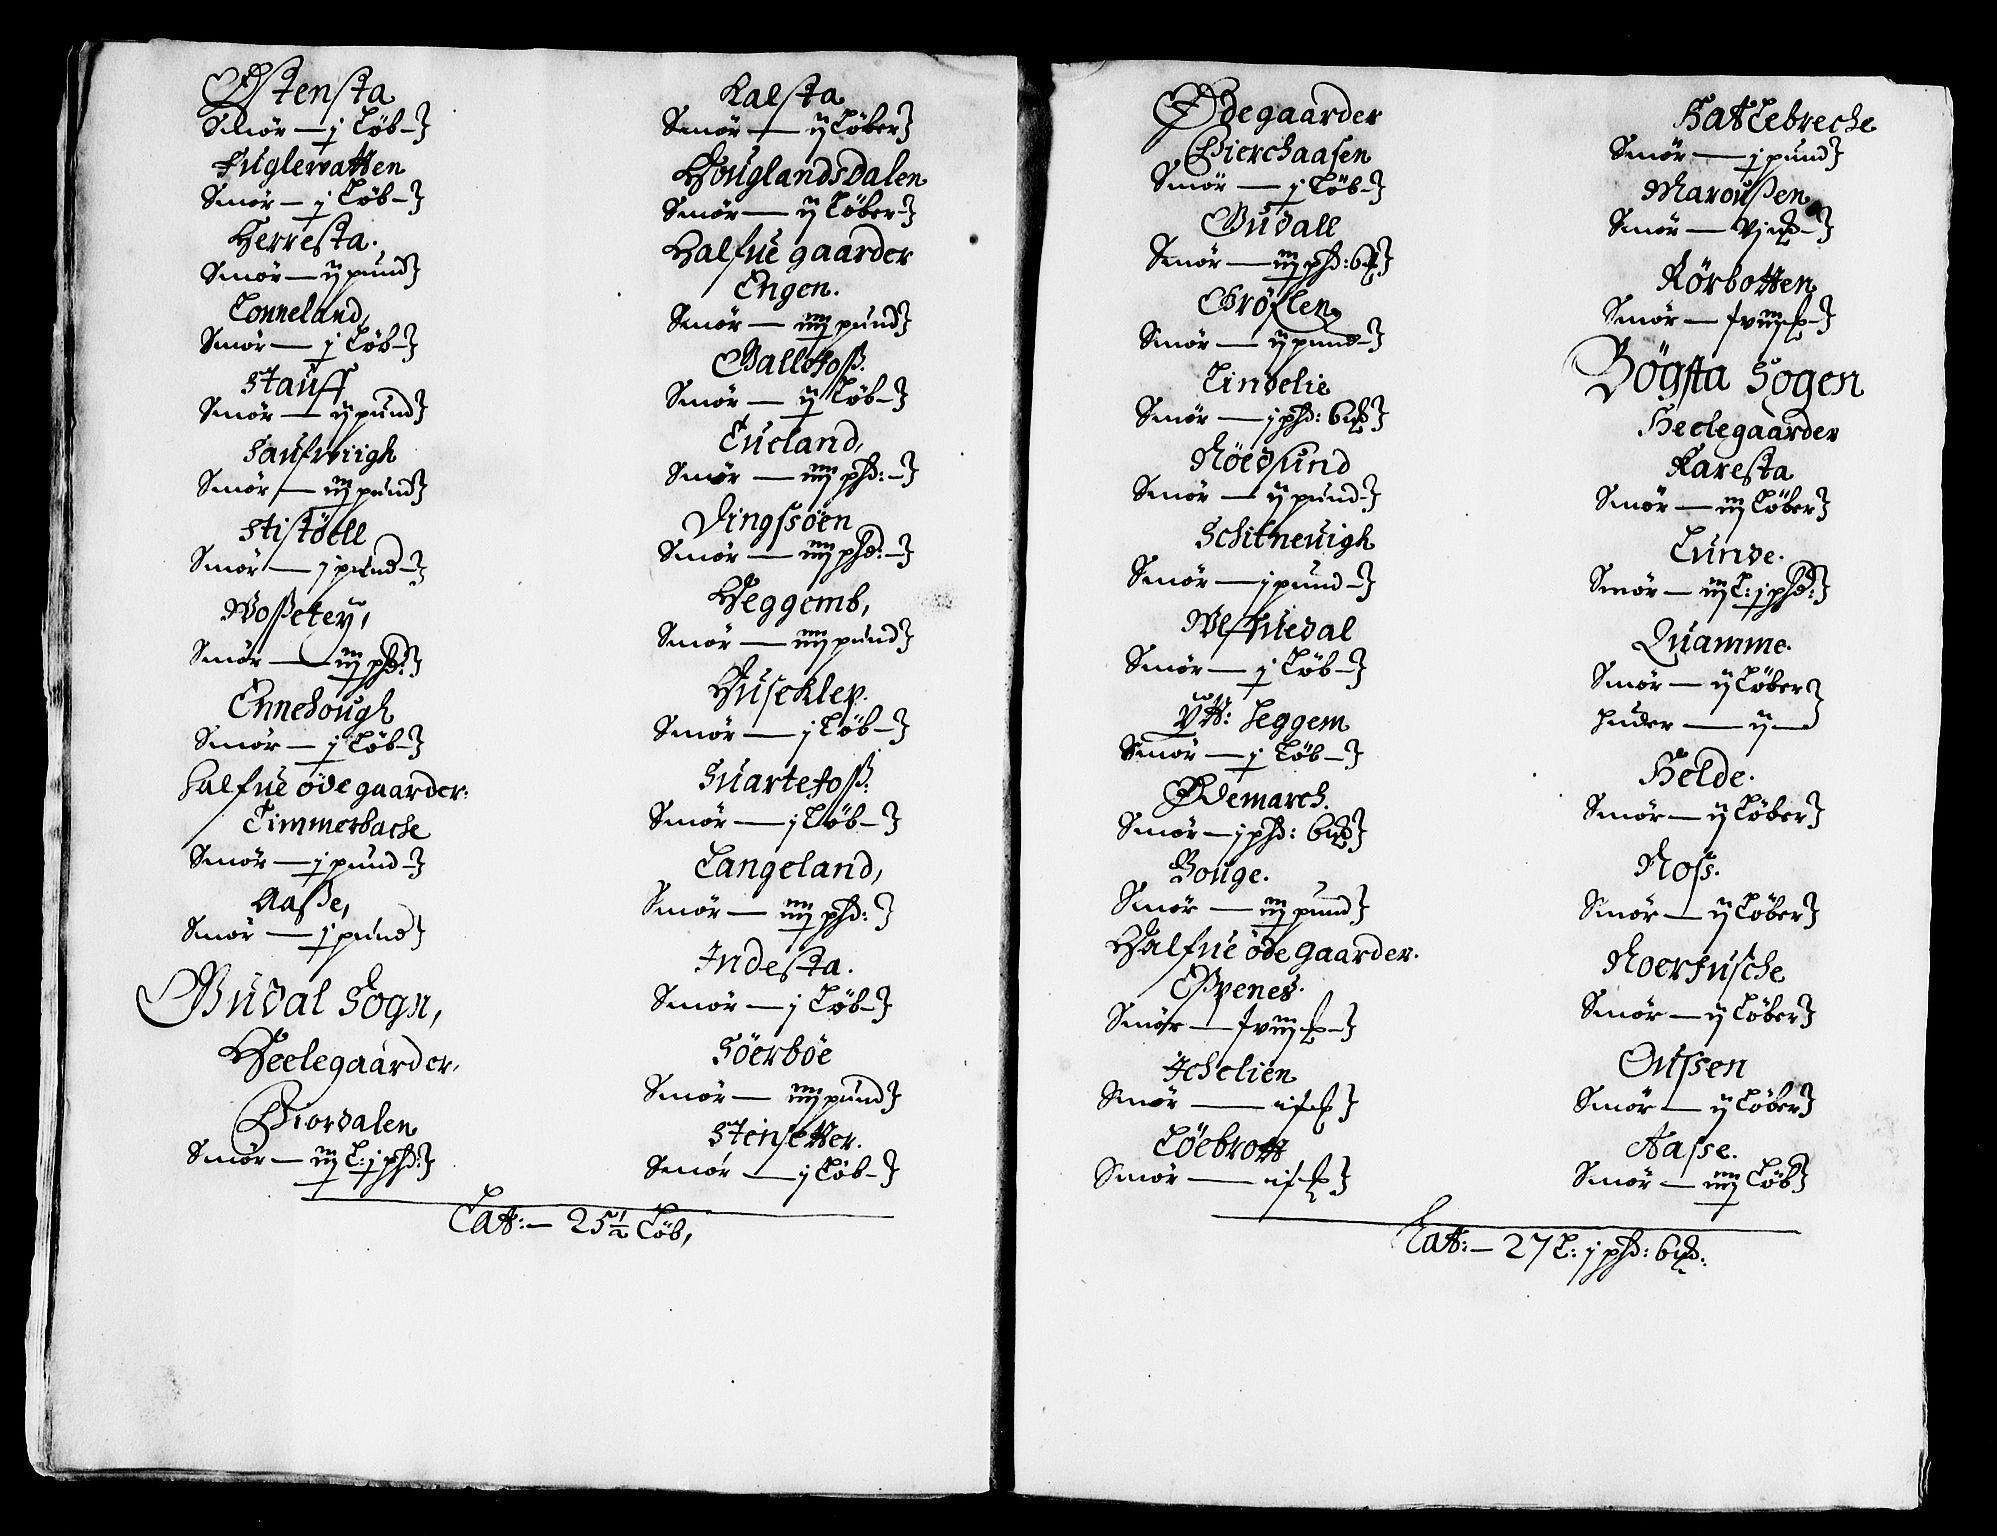 Østensta
Smør — j Løb —
Fuglevatten
Smør — j Løb —
Herresta.
Smør — ij pund
Tonneland,
Smør — j Løb —
Stauff
Smør — ij pund
Saufwiigh
Smør — iij pund
Stistöell
Smør — j pund —
Woßetey,
Smør — iij phd:
Ennehough
Smør — j Løb —
Halfue öde gaarder:
Timmerbache
Smør — j pund —
Aaße,
Smør — j pund
Gudal Sogn,
Heelegaarder,
Giordalen
Smør — iij L: j phd:
Kalsta
Smør — ij Løber
Houglandsdalen
Smør — ij Løber —
Halfue gaarder
Engen.
Smør — iiij pund
Galletoß.
Smør — ij Løb —
Tueland,
Smør — iiij phd: —
Dingssöen
Smør — iiij phd: —
Heggemb,
Smør — iiij pund
Huseklep.
Smør — j Løb —
Suartefoß:
Smør — j Løb —
Langeland,
Smør — iiij phd:
Indesta.
Smør — j Løb —
Söerböe
Smør — iiij pund
Stensetter.
Smør — j Løb —
Lat: — 25 1/2 Løb,
Ødegaarder
Bierchaasen
Smør — j Løb —
Gudall
Smør — iij phd: 6
Gröflen
Smør — ij pund —
Lindelie
Smør — j phd: 6
Röedsund
Smør — ij pund —
Schitneuigh
Smør — j pund —
Westuedal
Smør — j Løb —
Ytt: Leggem
Smør — j Løb —
Ødemarch.
Smør — j phd: 6
Bouge.
Smør — iij pund
Halfue öde gaarder.
Smør —
Ichelien
Smør —
Löebrott
Smør —
Hatlebreche
Smør — j pund
Maroußen
Smør — vj
Rörbotten
Smør —
Bögsta Sogen
Heelegaarder
Karesta
Smør — iij Løber
Lunde.
Smør — iij L: j phd:
Quamme.
Smør — ij Løber
Huder — ij —
Helde.
Smør — ij Løber
Noss.
Smør — ij Løber
Noerfusche
Smør — ij Løber
Outssen
Smør — ij Løber
Aasse.
Smør — iiij Løb
Lat: — 27 L: j phd: 6